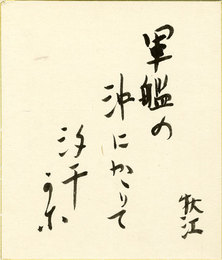 軍艦の
沖にかゝりて
汐干かな
秋江